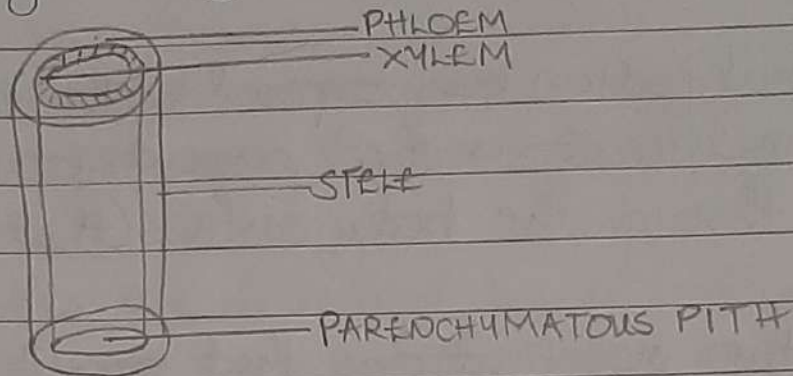 PHLOEM
XYLEM
STELE
PARENCHYMATOUS PITH